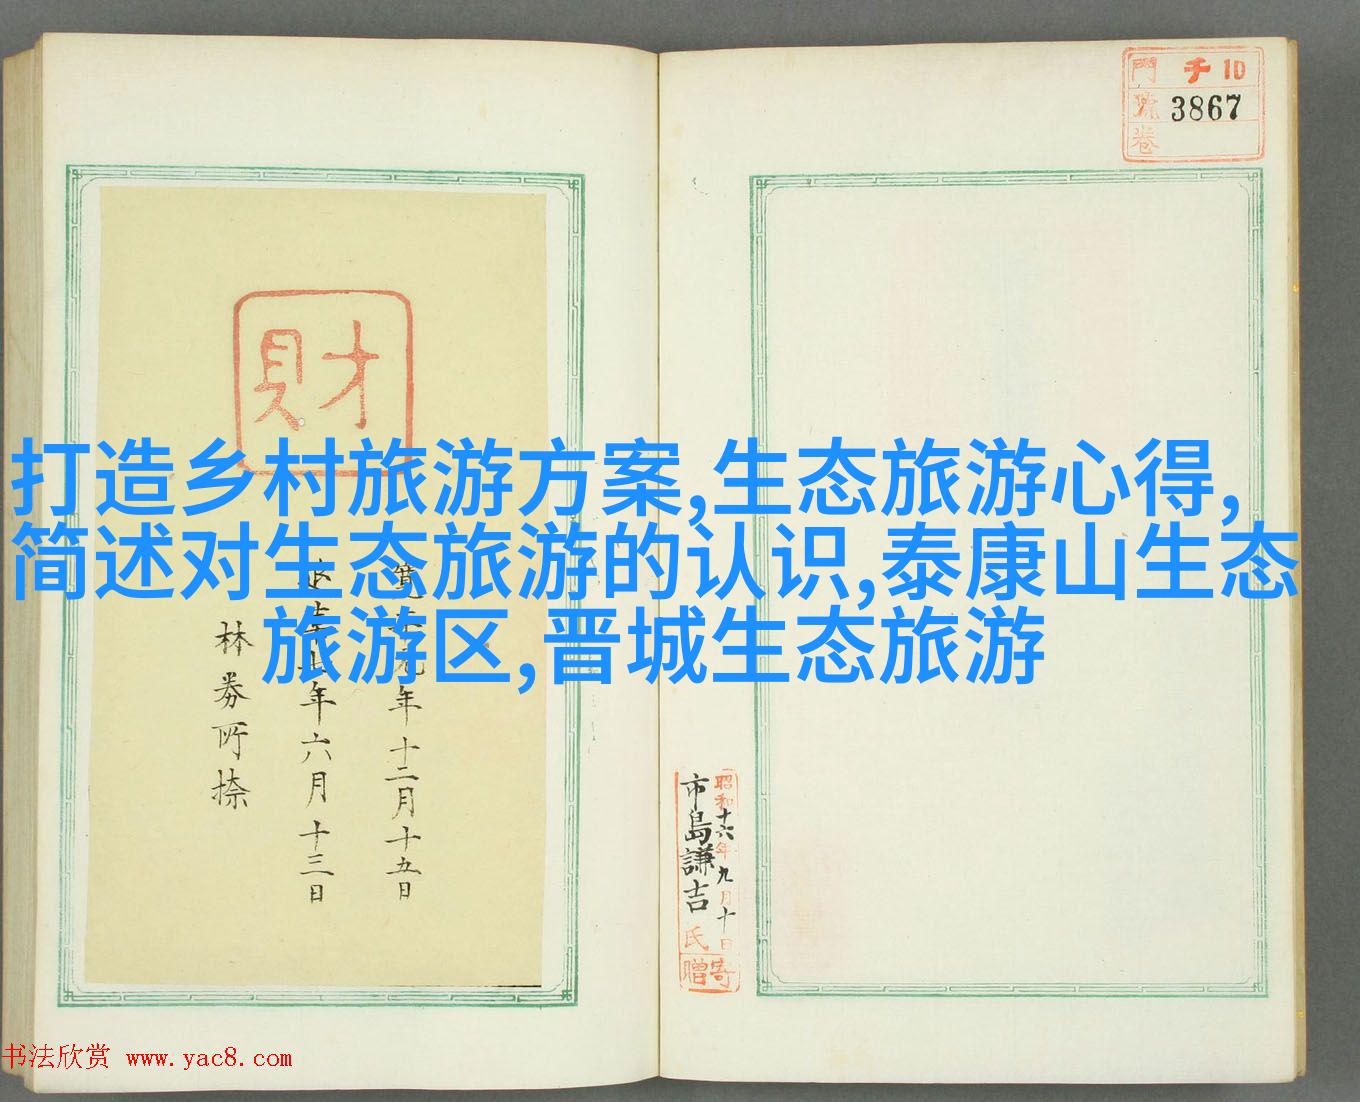 門 チ 10
號 3867
卷
財
打造乡村旅游方案,生态旅游心得,
简述对生态旅游的认识,泰康山生态
旅游区,晋城生态旅游
元年十二月十五日
七年六月十三日
林
昭和十六年九月十日
市島謙吉氏
寄贈
书法欣赏 www.yac8.com